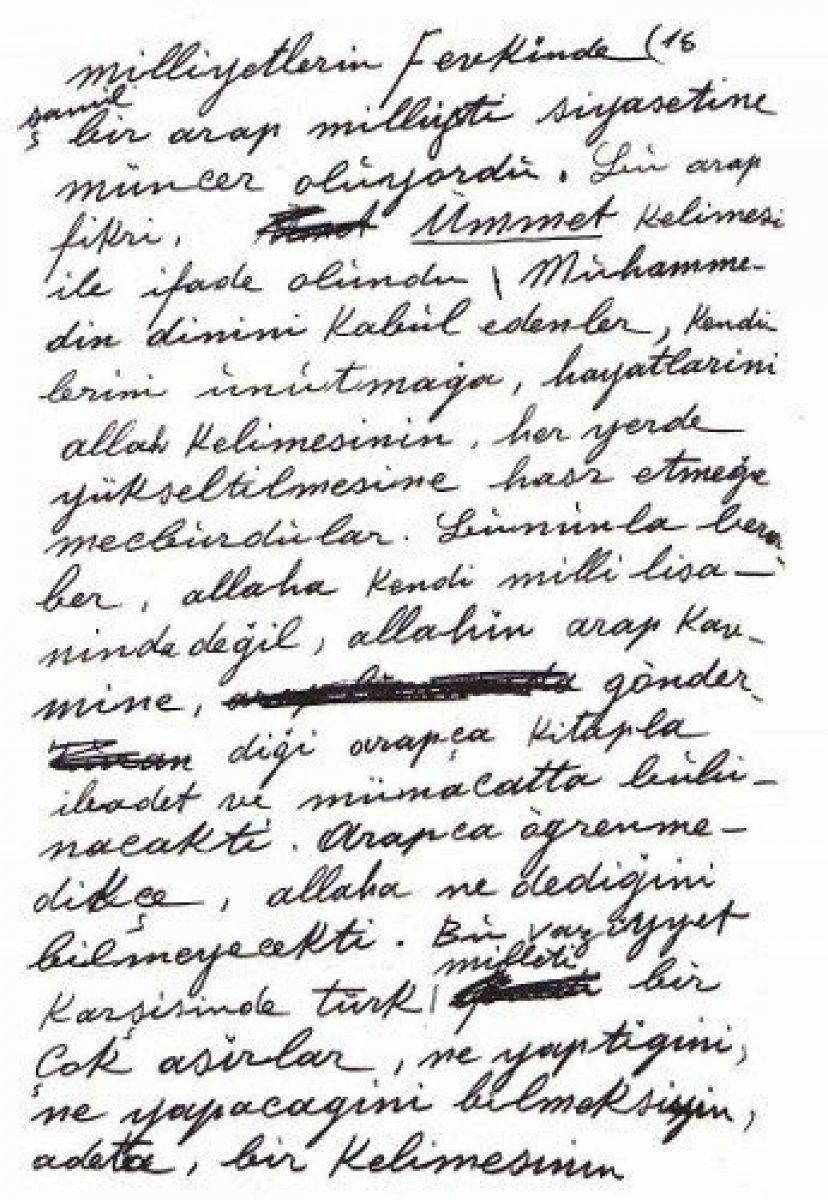 milliyetlerin fevkinde (16
şamil
bir arap milliyeti siyasetine
müncer olüyordü. Bü arap
fikri, Ümmet kelimesi
ile ifade olündü \ Mühamme-
din dinini kabül edenler, kendi
lerini ünütmağa, hayatlarini
allah kelimesinin, her yerde
yükseltilmesine hasr etmeğe
mecbürdülar. Bününla bera-
ber, allaha kendi milli lisa-
ninde değil, allahin arap kav-
mine, gönder-
diği arapça kitapla
ibadet ve münacatta bülü-
nacakti. Arapca öğrenme-
dikçe, allaha ne dediğini
bilmeyecekti. Bü vaziyyet
milleti
karşisinde türk bir
çok asirlar, ne yaptigini,
ne yapacagini bilmeksiyin,
adeta, bir kelimesinin